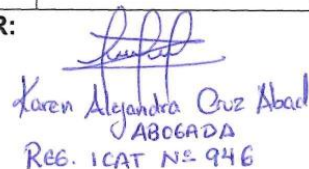 R:
Karen Alejandra Cruz Abad
ABOGADA
REG. ICAT Nº 946